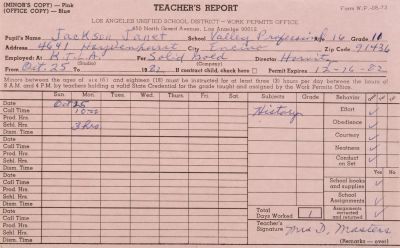 (MINOR'S COPY) — Pink
(OFFICE COPY) — Blue
TEACHER'S REPORT
Form W.P.-08-73
LOS ANGELES UNIFIED SCHOOL DISTRICT — WORK PERMITS OFFICE
450 North Grand Avenue, Los Angeles 90012
Pupil's Name Jackson, Janet School Valley Professional Age 16 Grade 10
Address 4641 Hayvenhurst City Encino Zip Code 91436
Employed: At K.T.L.A. For Solid Gold Director Horwitz
(Company)
From Oct. 25 To 1982 If contract child, check here Permit Expires 12-16-82
Minors between the ages of six (6) and eighteen (18) must be instructed for at least three (3) hours per day between the hours of
8 A.M. and 4 P.M. by teachers holding a valid State Credential for the grade taught and assigned by the Work Permits Office.
Sun. Mon. Tues. Wed. Thurs. Fri. Sat. Subjects Grade Behavior
Date Oct 25
Call Time 10
Prod. Hrs.
Schl. Hrs. 3 hrs
Dism. Time
Date
Call Time
Prod. Hrs.
Schl. Hrs.
Dism. Time
Date
Call Time
Prod. Hrs.
Schl. Hrs.
Dism. Time
History
Effort
Obedience
Courtesy
Neatness
Conduct on Set
Yes No
School books and supplies
School Assignments
Assignments corrected and returned
Total Days Worked 1
(over)
Teacher's Signature Mrs D. Masters
(Remarks — over)